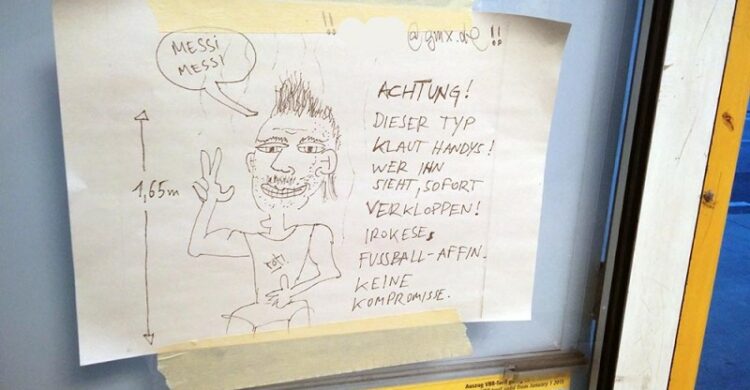 @gmx.de !!
!!
MESSI
MESSI
1,65m
ACHTUNG!
DIESER TYP
KLAUT HANDYS!
WER IHN
SIEHT, SOFORT
VERKLOPPEN!
IROKESE,
FUSSBALL-AFFIN.
KEINE
KOMPROMISSE.
Auszug VBB-Tarif
from January 1 2015